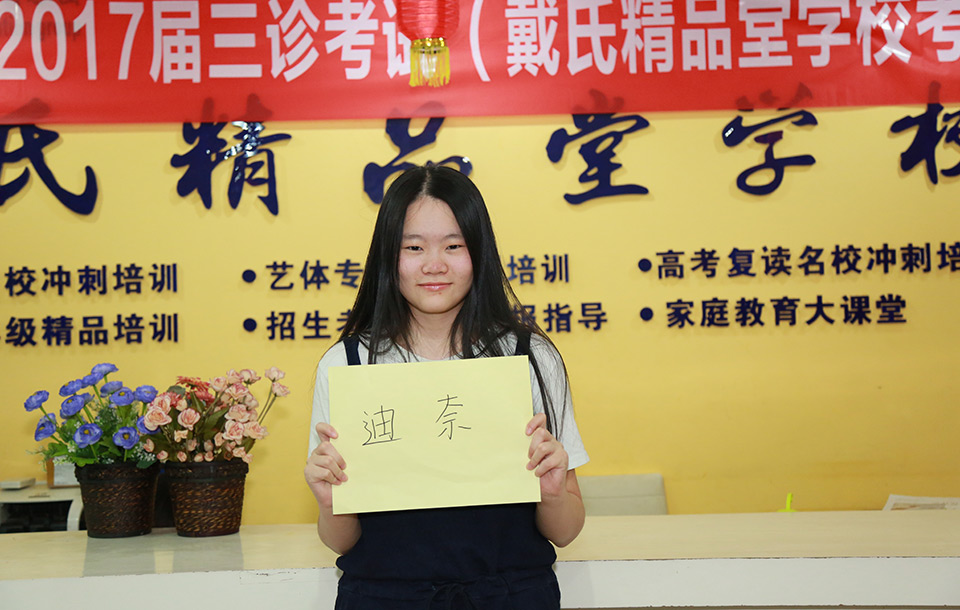 2017届三诊考试（戴氏精品堂学校考
氏精品堂学校
校冲刺培训
•艺体专 培训
•高考复读名校冲刺培
级精品培训
•招生考 报指导
•家庭教育大课堂
迪 奈